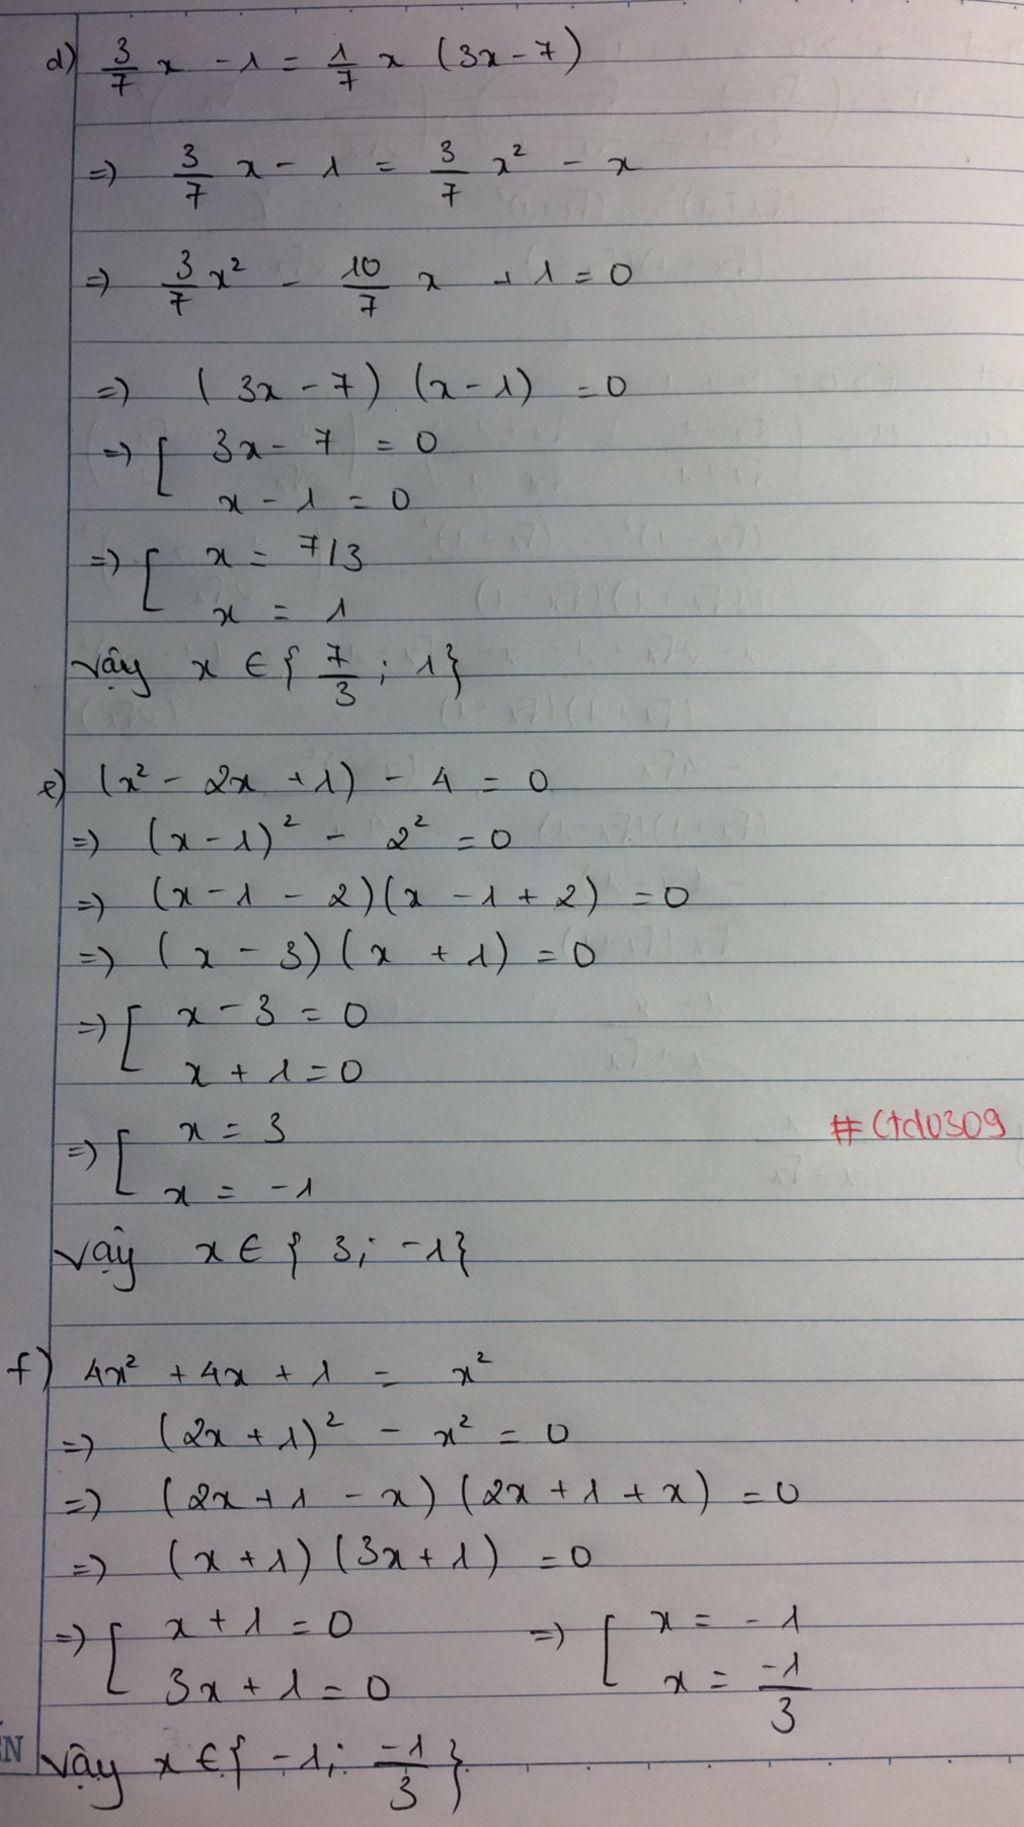 d) 3/7 x - 1 = 1/7 x (3x - 7)
=> 3/7 x - 1 = 3/7 x² - x
=> 3/7 x² - 10/7 x + 1 = 0
=> (3x - 7) (x - 1) = 0
=> [ 3x - 7 = 0
x - 1 = 0
=> [ x = 7/3
x = 1
Vậy x ∈ { 7/3 ; 1}
e) (x² - 2x + 1) - 4 = 0
=> (x - 1)² - 2² = 0
=> (x - 1 - 2)(x - 1 + 2) = 0
=> (x - 3) (x + 1) = 0
=> [ x - 3 = 0
x + 1 = 0
=> [ x = 3
x = -1
#Ctd0309
Vậy x ∈ { 3; -1}
f) 4x² + 4x + 1 = x²
=> (2x + 1)² - x² = 0
=> (2x + 1 - x) (2x + 1 + x) = 0
=> (x + 1) (3x + 1) = 0
=> [ x + 1 = 0 => [ x = -1
3x + 1 = 0 x = -1/3
Vậy x ∈ { -1; -1/3 }